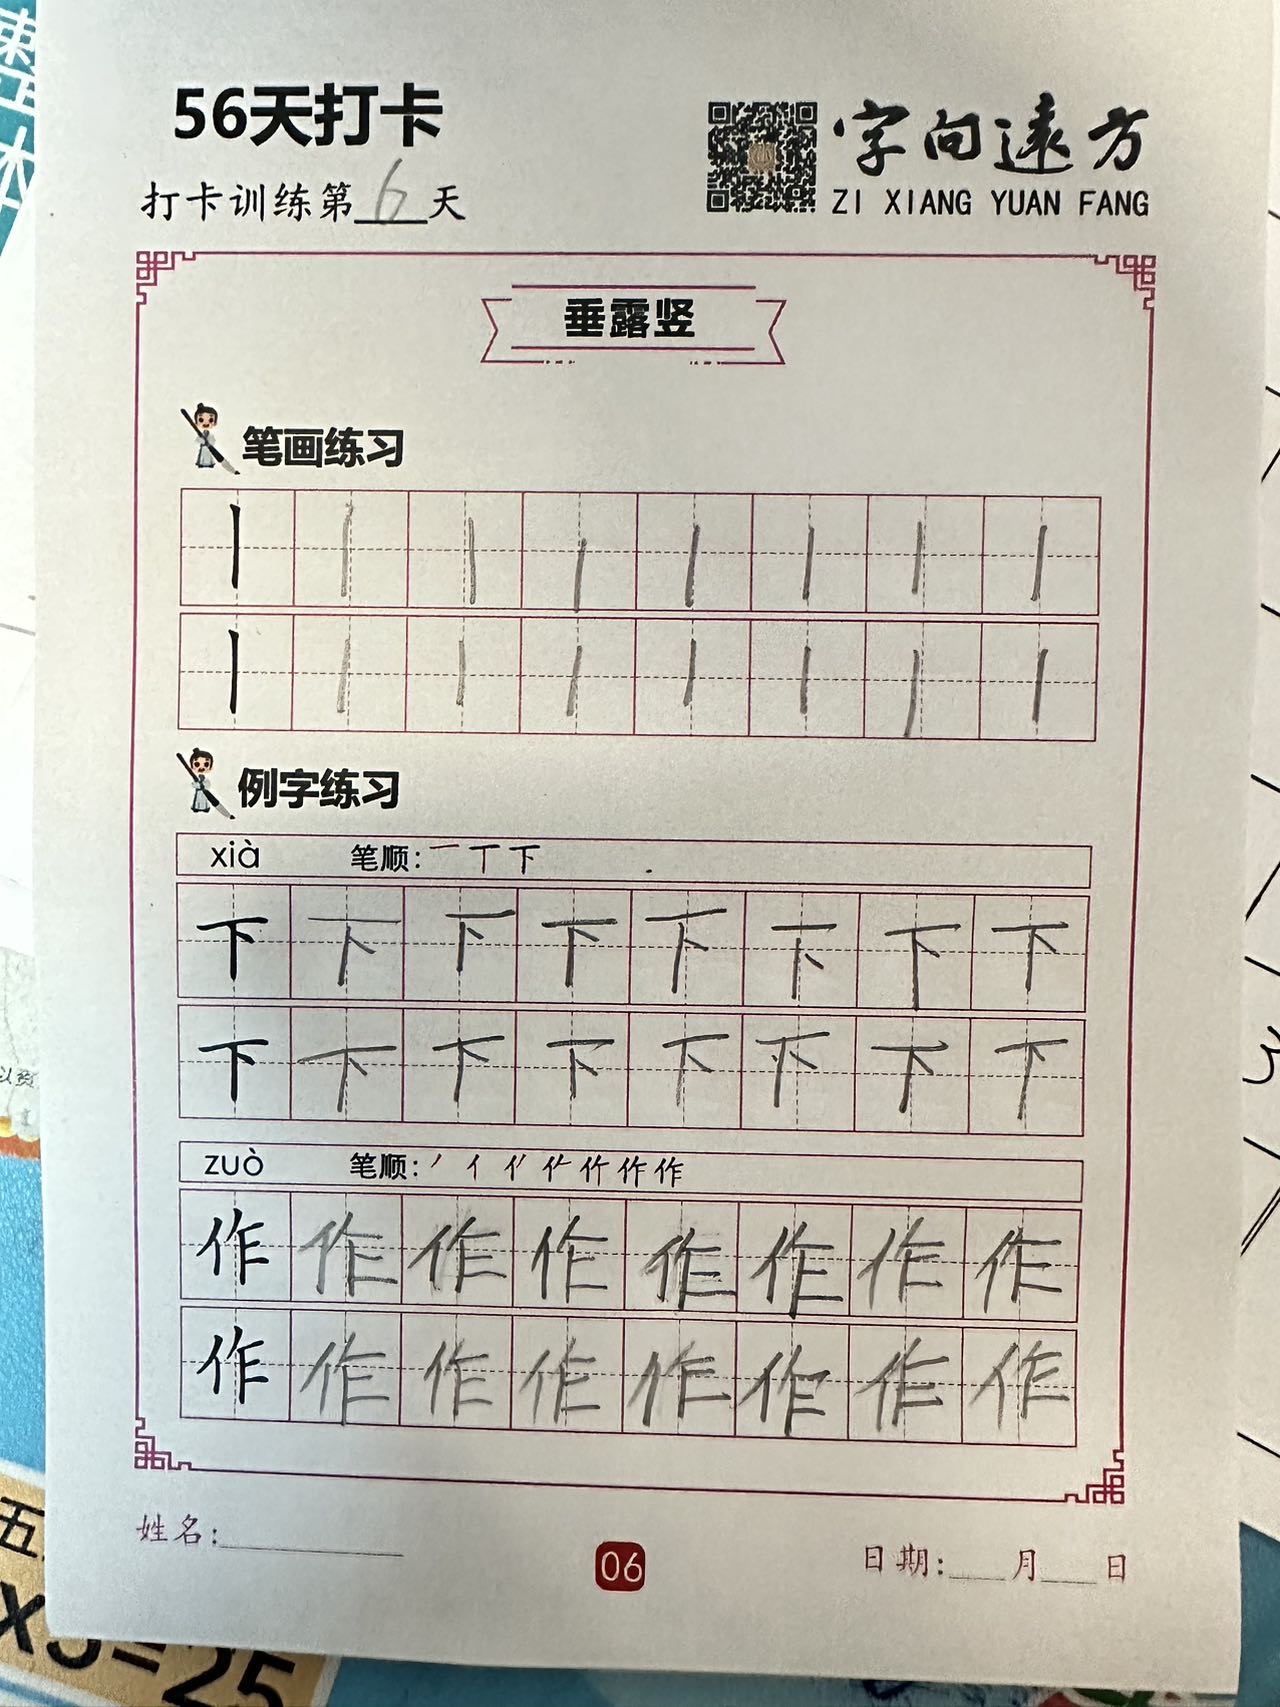 56天打卡
打卡训练第6天
字向遠方
ZI XIANG YUAN FANG
垂露竖
笔画练习
丨 丨 丨 丨 丨 丨 丨 丨
丨 丨 丨 丨 丨 丨 丨 丨
例字练习
xià 笔顺: 一 丅 下
下 下 下 下 下 下 下 下
下 下 下 下 下 下 下 下
zuò 笔顺:
作 作 作 作 作 作 作 作
作 作 作 作 作 作 作 作
姓名:
06
日期: 月 日
五
x5=25